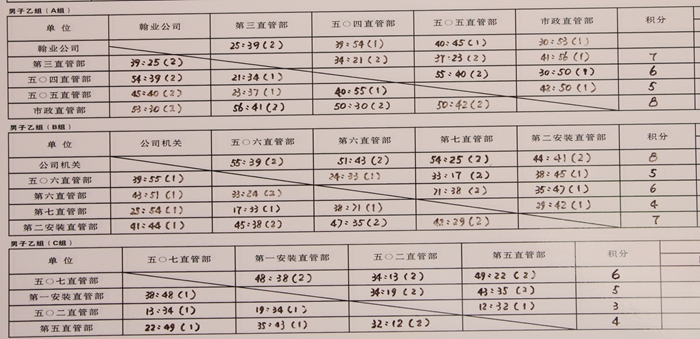 男子乙组（A组）
单 位 翰业公司 第三直管部 五〇四直管部 五〇五直管部 市政直管部 积分
翰业公司 25:39(2) 39:54(1) 40:45(1) 30:53(1)
第三直管部 39:25(2) 34:21(2) 37:23(2) 41:56(1) 7
五〇四直管部 54:39(2) 21:34(1) 55:40(2) 30:50(1) 6
五〇五直管部 45:40(2) 23:37(1) 40:55(1) 42:50(1) 5
市政直管部 53:30(2) 56:41(2) 50:30(2) 50:42(2) 8
男子乙组（B组）
单 位 公司机关 五〇六直管部 第六直管部 第七直管部 第二安装直管部 积分
公司机关 55:39(2) 51:43(2) 54:25(2) 44:41(2) 8
五〇六直管部 39:55(1) 24:33(1) 33:17(2) 38:45(1) 5
第六直管部 43:51(1) 33:24(2) 71:38(2) 35:47(1) 6
第七直管部 25:54(1) 17:33(1) 38:71(1) 29:42(1) 4
第二安装直管部 41:44(1) 45:38(2) 47:35(2) 42:29(2) 7
男子乙组（C组）
单 位 五〇七直管部 第一安装直管部 五〇二直管部 第五直管部 积分
五〇七直管部 48:38(2) 34:13(2) 49:22(2) 6
第一安装直管部 38:48(1) 34:19(2) 43:35(2) 5
五〇二直管部 13:34(1) 19:34(1) 12:32(1) 3
第五直管部 22:49(1) 35:43(1) 32:12(2) 4